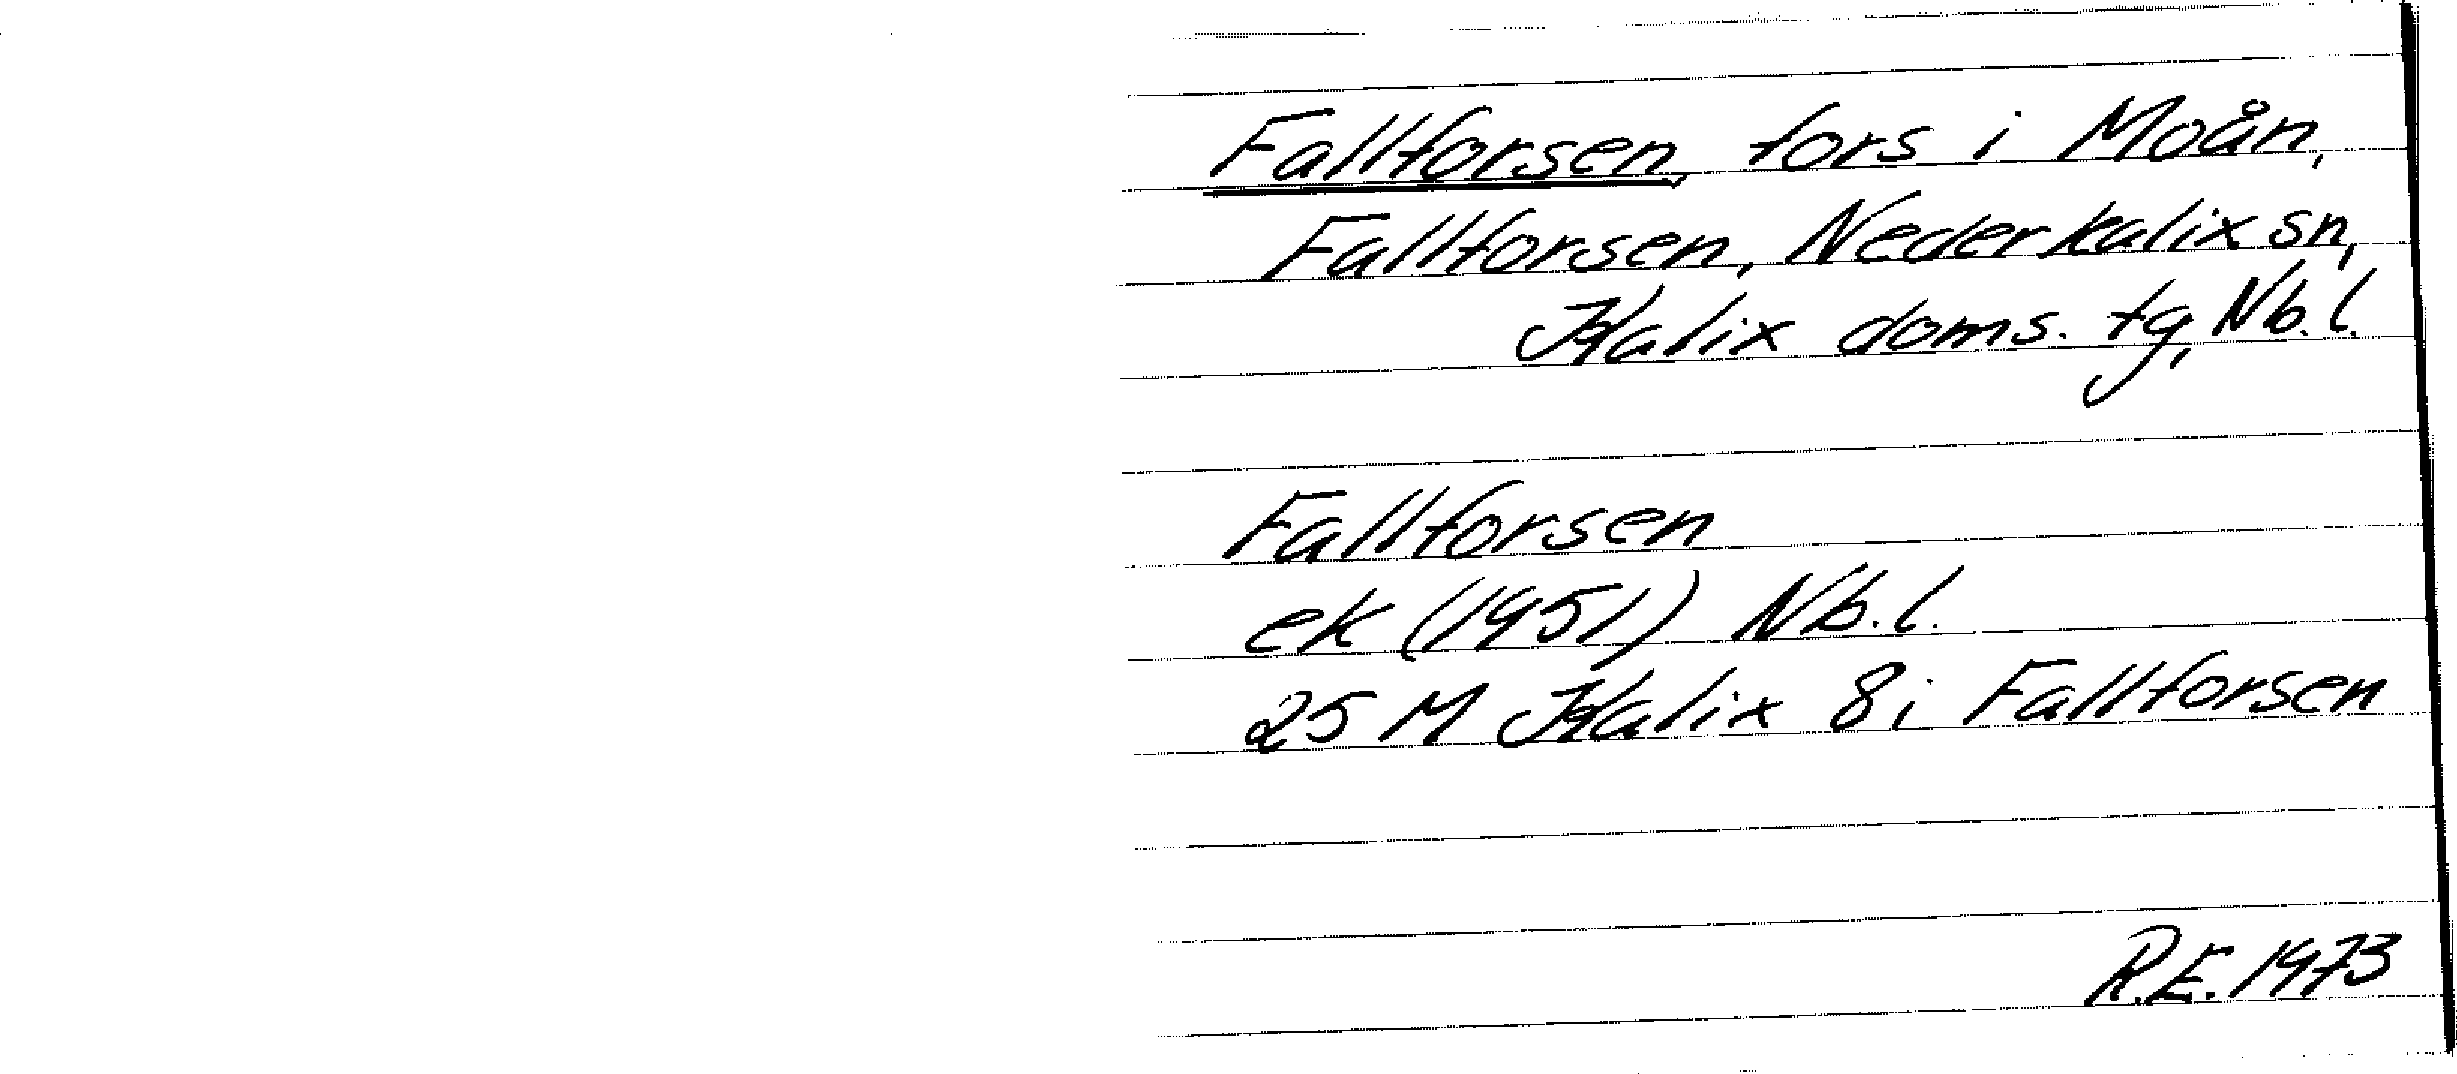 Fallforsen, fors i Moån,
Fallforsen, Nederkalix sn,
Kalix doms. tg, Nb.l.
Fallforsen
ek (1951) Nb.l.
25 M Kalix 8i Fallforsen
R.E. 1973